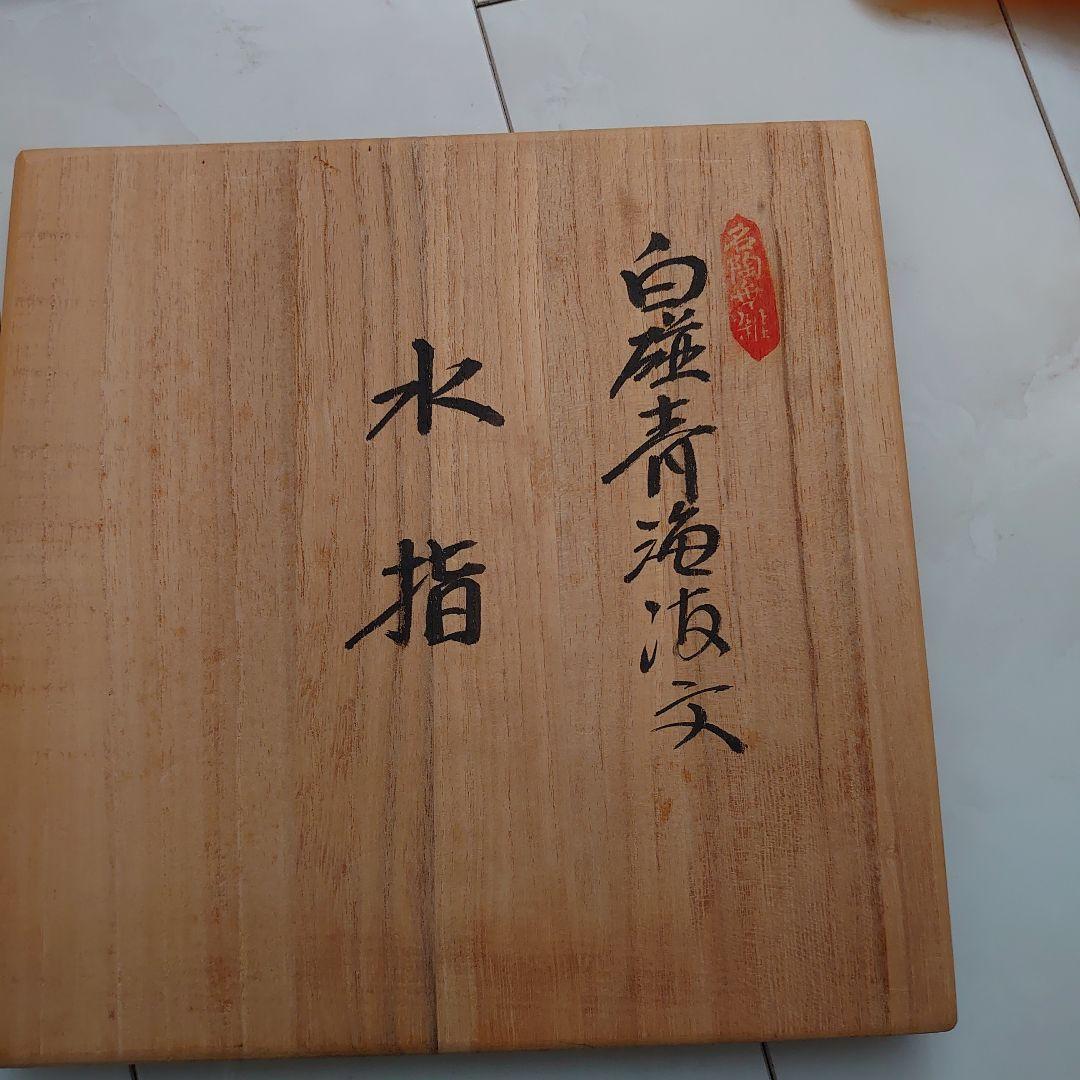 名陶
白磁青海波文
水指